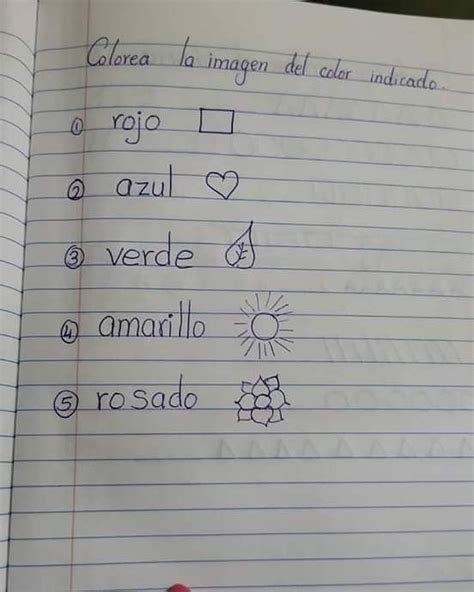 Colorea la imagen del color indicado.
① rojo
② azul
③ verde
④ amarillo
⑤ rosado